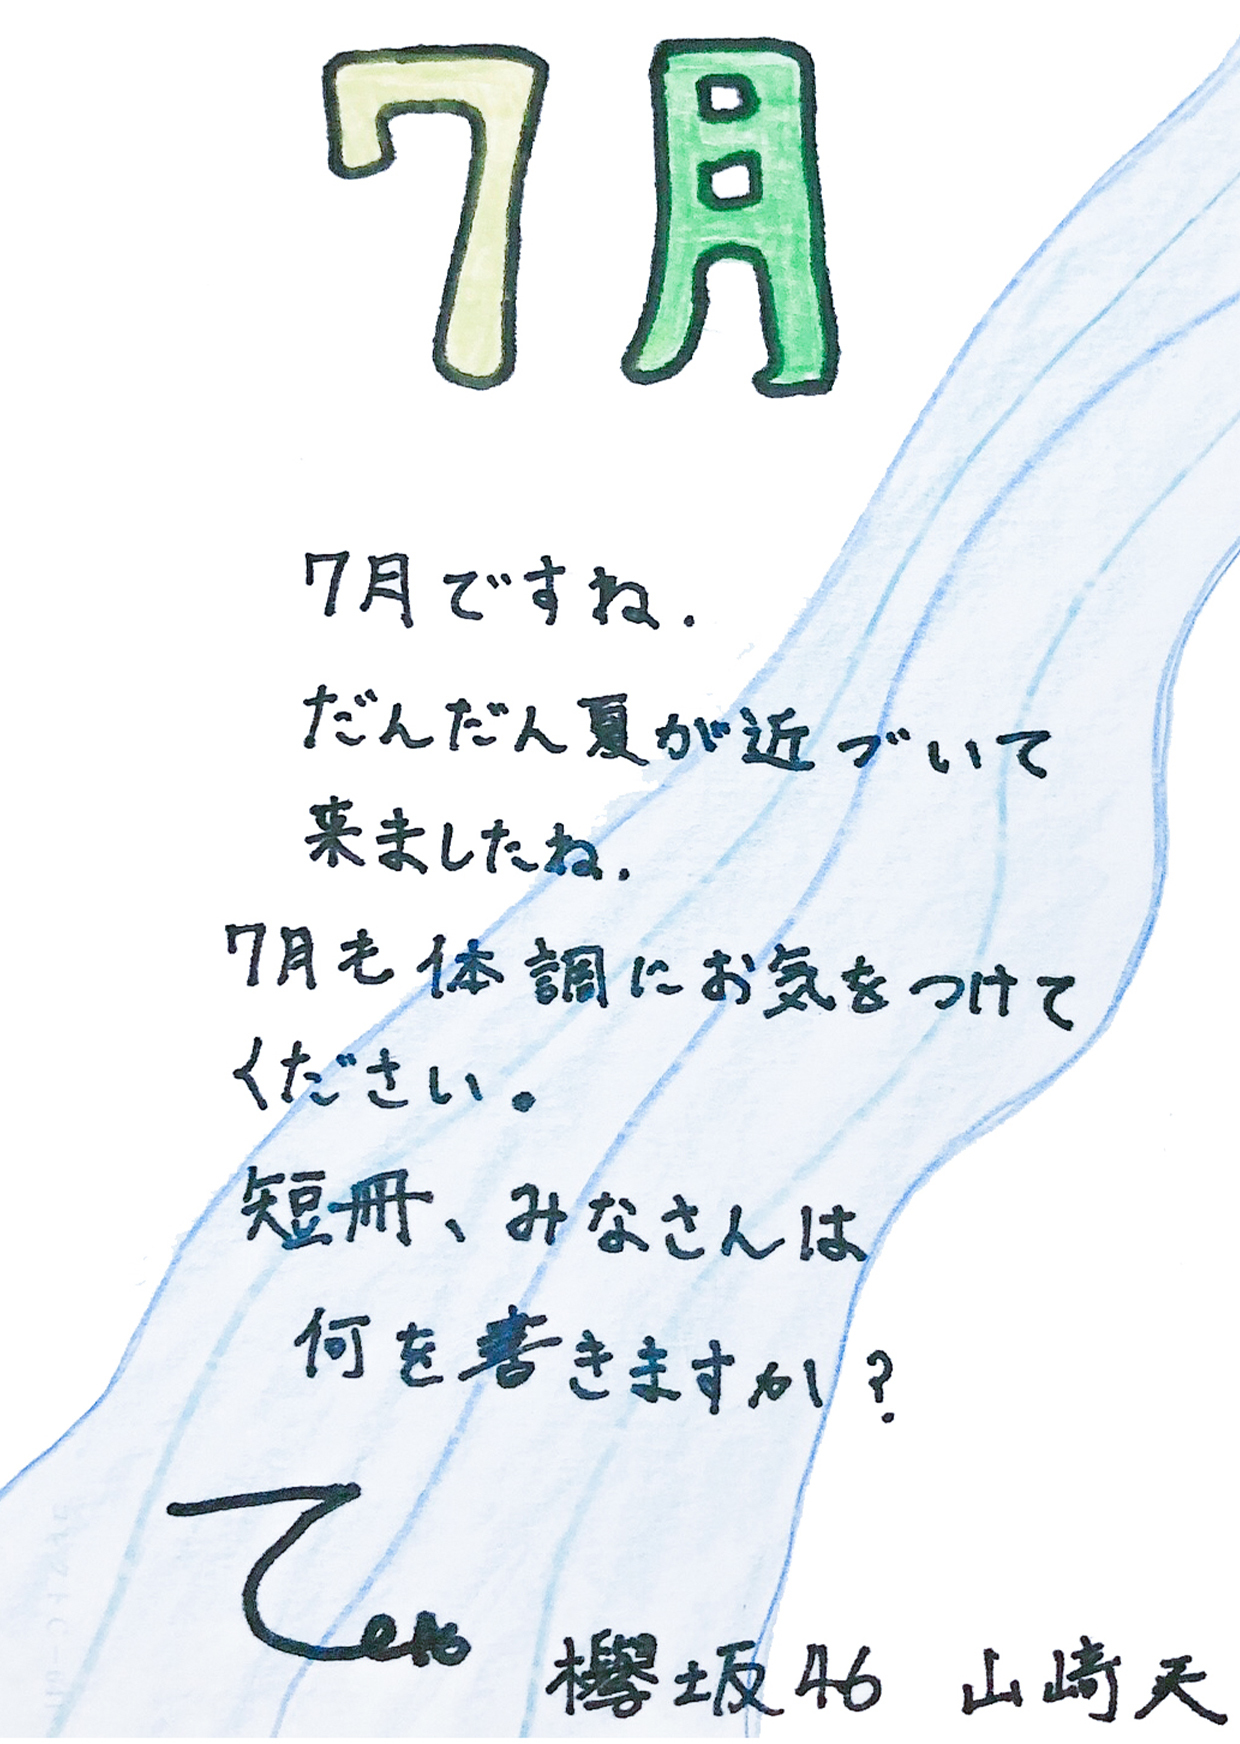 7月
7月ですね.
だんだん夏が近づいて
来ましたね.
7月も体調にお気をつけて
ください。
短冊、みなさんは
何を書きますか?
欅坂46 山﨑天